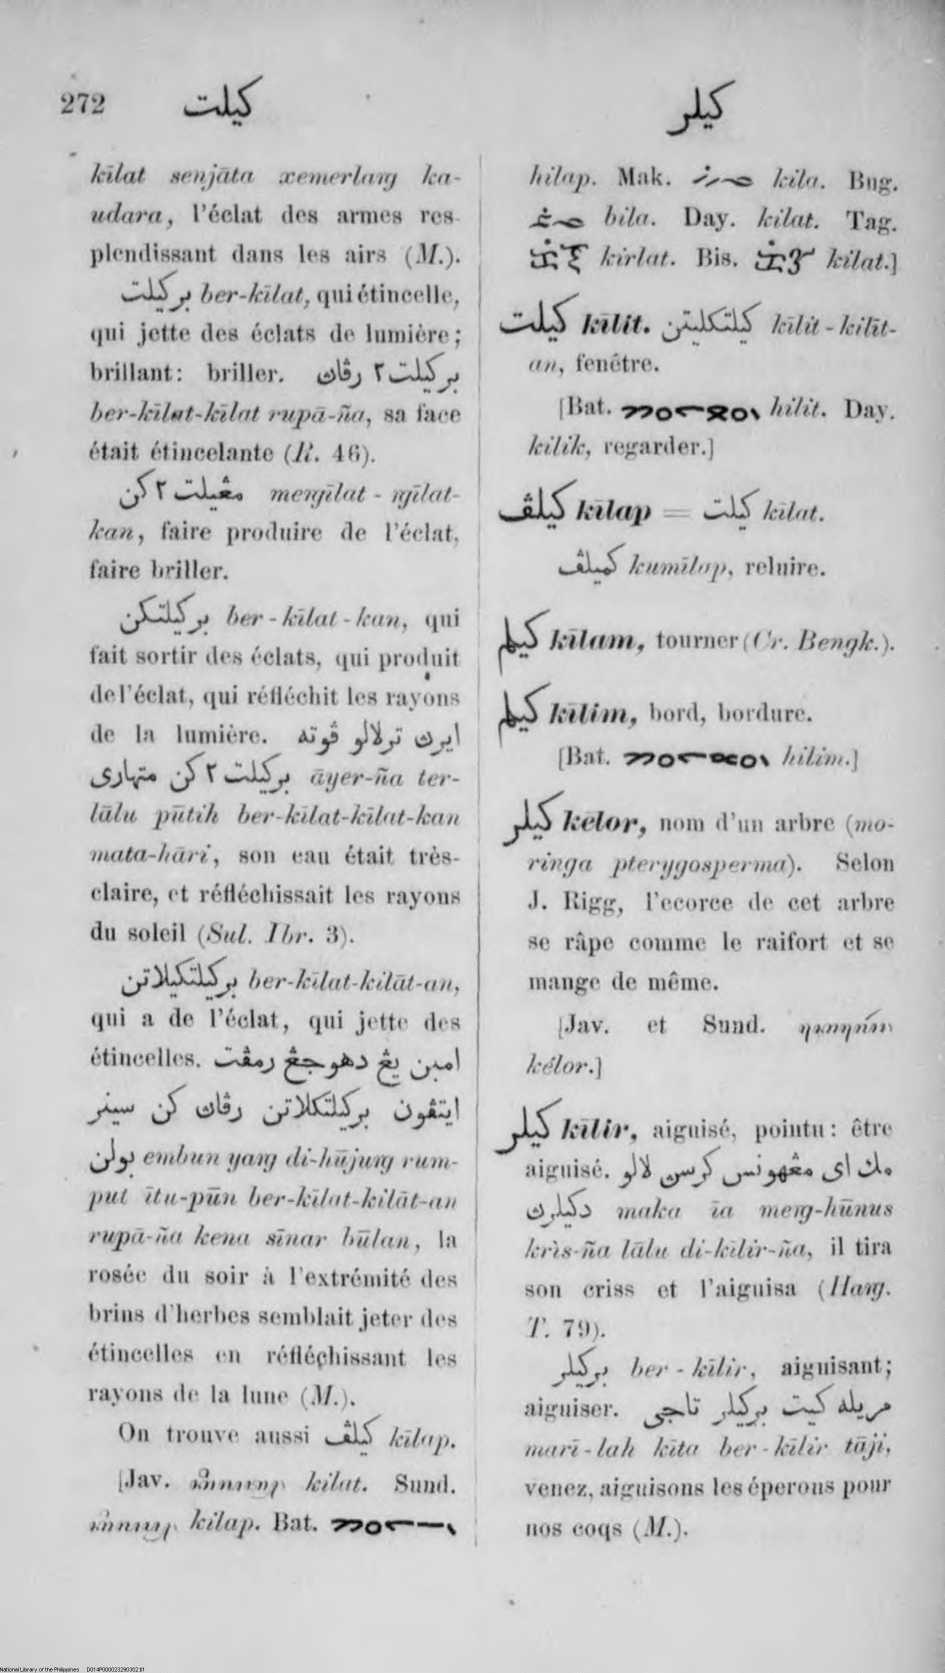 272
كيلت
كيلر
kīlat senjāta xemerlaŋ ka-
udara, l'éclat des armes res-
plendissant dans les airs (M.).
بركيلت ber-kīlat, qui étincelle,
qui jette des éclats de lumière;
brillant: briller. بركيلت٢ رڤاڽ
ber-kīlat-kīlat rupā-ña, sa face
était étincelante (R. 46).
مڠيلت٢كن meŋīlat-ŋīlat-
kan, faire produire de l'éclat,
faire briller.
بركيلتكن ber-kīlat-kan, qui
fait sortir des éclats, qui produit
de l'éclat, qui réfléchit les rayons
de la lumière. ايرڽ ترلالو ڤوته
بركيلت٢كن متهاري āyer-ña ter-
lālu pūtih ber-kīlat-kīlat-kan
mata-hāri, son eau était très-
claire, et réfléchissait les rayons
du soleil (Sul. Ibr. 3).
بركيلتكيلاتن ber-kīlat-kilāt-an,
qui a de l'éclat, qui jette des
étincelles. امبن يڠ دهوجڠ رمڤت
ايتڤون بركيلتكلاتن رڤاڽ كن سينر
بولن embun yaŋ di-hūjuŋ rum-
put ītu-pūn ber-kīlat-kilāt-an
rupā-ña kena sīnar būlan, la
rosée du soir à l'extrémité des
brins d'herbes semblait jeter des
étincelles en réfléchissant les
rayons de la lune (M.).
On trouve aussi كيلڤ kīlap.
[Jav. kilat. Sund.
kilap. Bat.
hilap. Mak. kila. Bug.
bila. Day. kilat. Tag.
kirlat. Bis. kilat.]
كيلت kīlit. كيلتكليتن kīlit-kilīt-
an, fenêtre.
[Bat. hilit. Day.
kilik, regarder.]
كيلڤ kīlap = كيلت kīlat.
كميلڤ kumīlap, reluire.
كيلم kīlam, tourner (Cr. Bengk.).
كيلم kīlim, bord, bordure.
[Bat. hilim.]
كيلر kēlor, nom d'un arbre (mo-
ringa pterygosperma). Selon
J. Rigg, l'ecorce de cet arbre
se râpe comme le raifort et se
mange de même.
[Jav. et Sund.
kélor.]
كيلر kīlir, aiguisé, pointu: être
aiguisé. مك اي مڠهونس كرسن لالو
دكيلرڽ maka īa meŋ-hūnus
krìs-ña lālu di-kīlir-ña, il tira
son criss et l'aiguisa (Haŋ.
T. 79).
بركيلر ber-kīlir, aiguisant;
aiguiser. مريله كيت بركيلر تاجي
marī-lah kīta ber-kīlir tāji,
venez, aiguisons les éperons pour
nos coqs (M.).
National Library of the Philippines